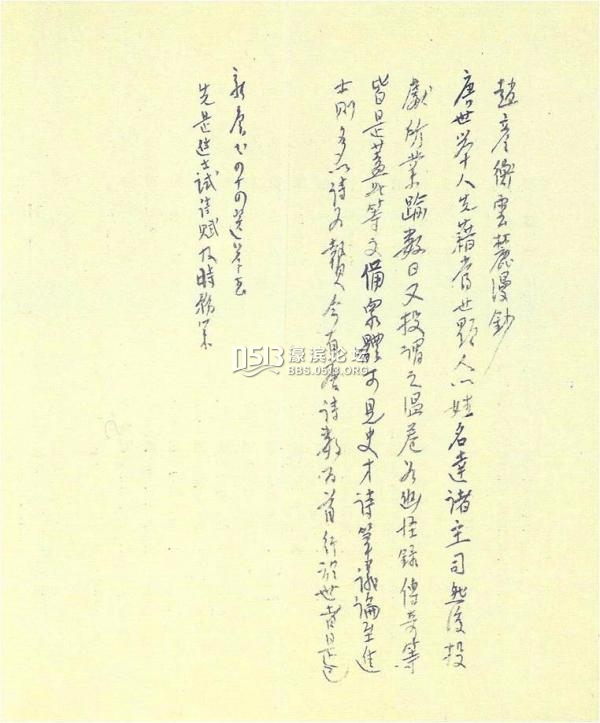 趙彦衛雲麓漫鈔
唐世举人先藉當世顯人以姓名達諸主司然後投
獻所業踰數日又投謂之温卷如幽怪錄傳奇等
皆是蓋此等文備衆體可見史才詩筆議論至進
士則多以詩为贄今有唐詩數百首行於世者是也
新唐书四十四選举志
先是進士試詩賦及時務策
濠滨论坛
BBS.0513.ORG
0513